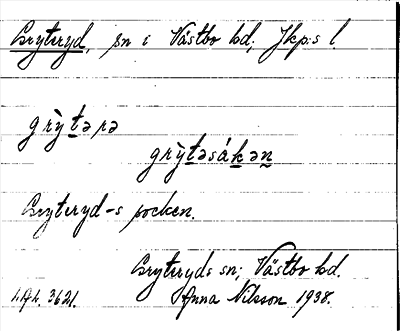 Gryteryd, sn i Västbo hd, Jkp:s l.
grỳtərə
grỳtəsákən
Gryteryd-s socken.
Gryteryds sn; Västbo hd.
L.A.L. 3621. Anna Nilsson 1938.